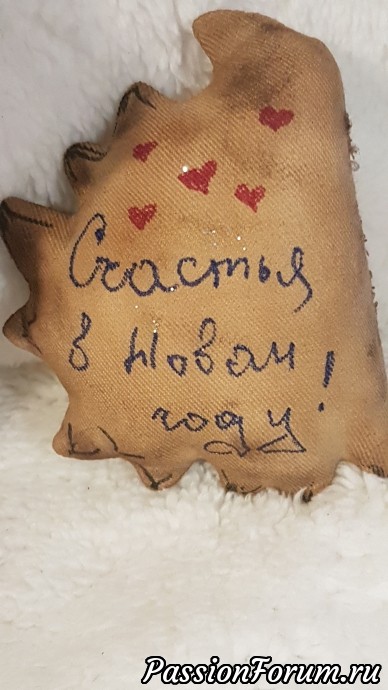 Счастья
в Новом
году!
PassionForum.ru